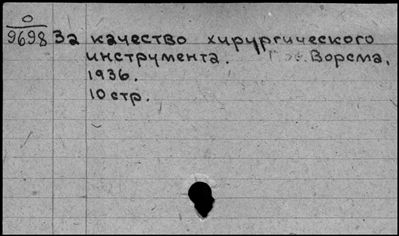 0
9698 За качество хирургического
инструмента. Ворсма,
1936.
10 стр.